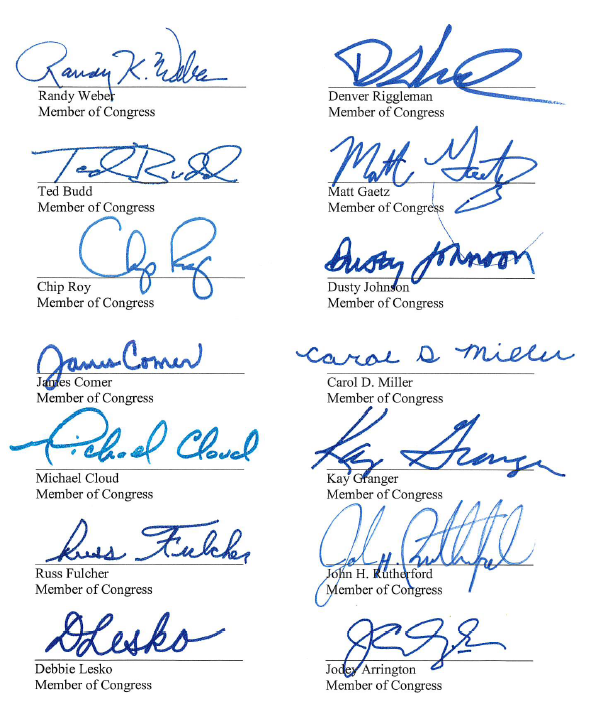 Randy K. Weber
Randy Weber
Member of Congress
Denver Riggleman
Member of Congress
Ted Budd
Ted Budd
Member of Congress
Matt Gaetz
Matt Gaetz
Member of Congress
Chip Roy
Chip Roy
Member of Congress
Dusty Johnson
Dusty Johnson
Member of Congress
James Comer
James Comer
Member of Congress
Carol D Miller
Carol D. Miller
Member of Congress
Michael Cloud
Michael Cloud
Member of Congress
Kay Granger
Kay Granger
Member of Congress
Russ Fulcher
Russ Fulcher
Member of Congress
John H. Rutherford
John H. Rutherford
Member of Congress
DLesko
Debbie Lesko
Member of Congress
Jodey Arrington
Member of Congress